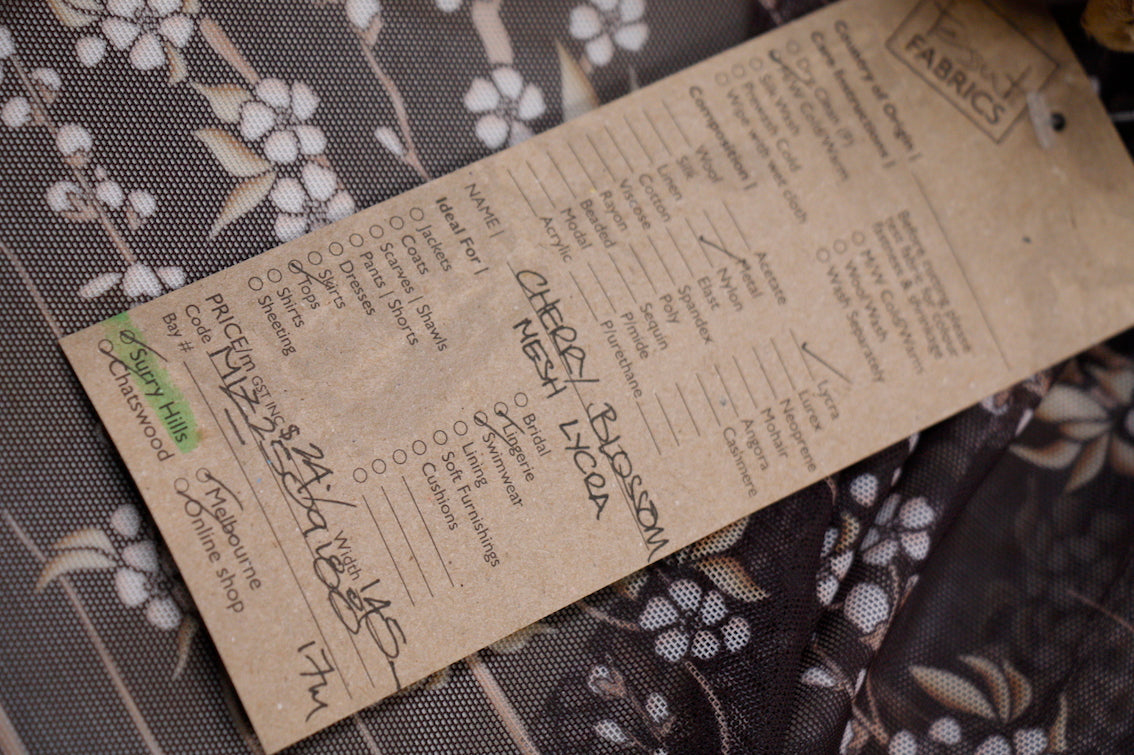 FABRICS
Country of Origin |
Care Instructions |
Dry Clean (P)
M/W Cold/Warm
Silk Wash
Prewash Cold
Wipe with wet cloth
Before cutting please
test fabric for colour
fastness & shrinkage
M/W Cold/Warm
WoolWash
Wish Separately
Composition |
Wool
Silk
Linen
Cotton
Viscose
Rayon
Beaded
Modal
Acrylic
Acetate
Metal
Nylon
Elast
Spandex
Poly
Sequin
P/mide
P/urethane
Lycra
Lurex
Neoprene
Mohair
Angora
Cashmere
NAME | CHERRY BLOSSOM
MESH LYCRA
Ideal For |
Jackets
Coats
Scarves | Shawls
Pants | Shorts
Dresses
Skirts
Tops
Shirts
Sheeting
Bridal
Lingerie
Swimwear
Lining
Soft Furnishings
Cushions
PRICE/m GST INC $ 24./ Width 145
Code
Bay #
Surry Hills
Chatswood
Melbourne
Online shop
17m